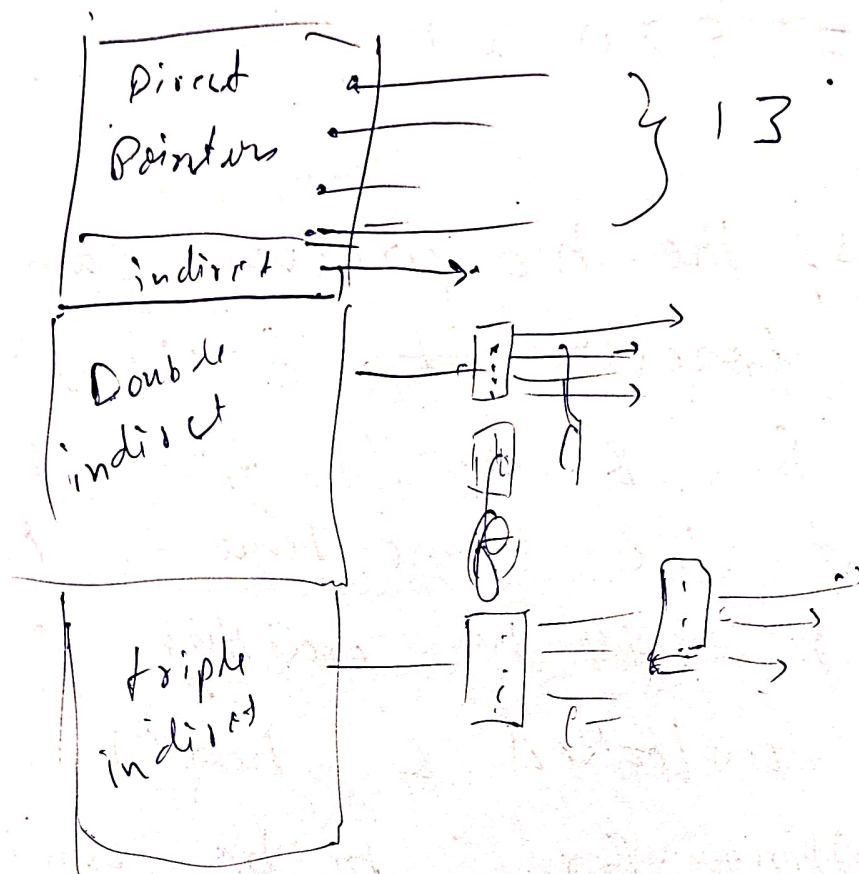 Direct
Pointers
13
indirect
Double
indirect
triple
indirect